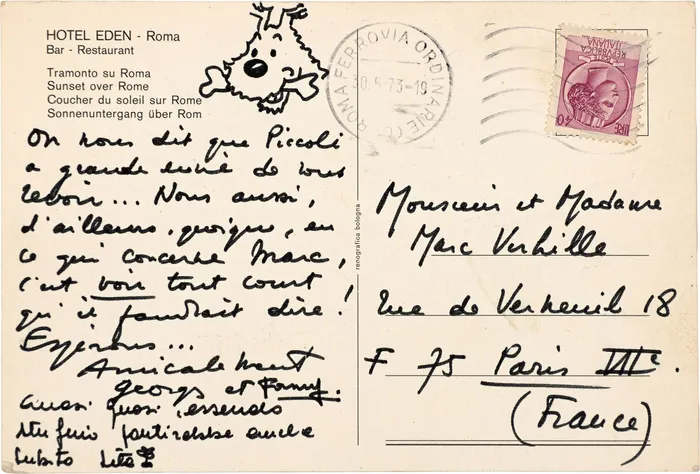 HOTEL EDEN - Roma
Bar - Restaurant
Tramonto su Roma
Sunset over Rome
Coucher du soleil sur Rome
Sonnenuntergang über Rom
ROMA FERROVIA ORDINARIE
30.5-73-19
REPUBBLICA
ITALIANA
LIRE 40
On nous dit que Piccoli
a grande envie de vous
revoir... Nous aussi,
d'ailleurs, quoique, en
ce qui concerne Marc,
c'est voir tout court
qu'il faudrait dire !
Espérons...
Amicalement
Georges et Fanny.
quasi quasi, essendo
partirebbe anche
subito
renografica bologna
Monsieur et Madame
Marc Verhille
Rue de Verneuil 18
F 75 Paris VIIe.
(France)